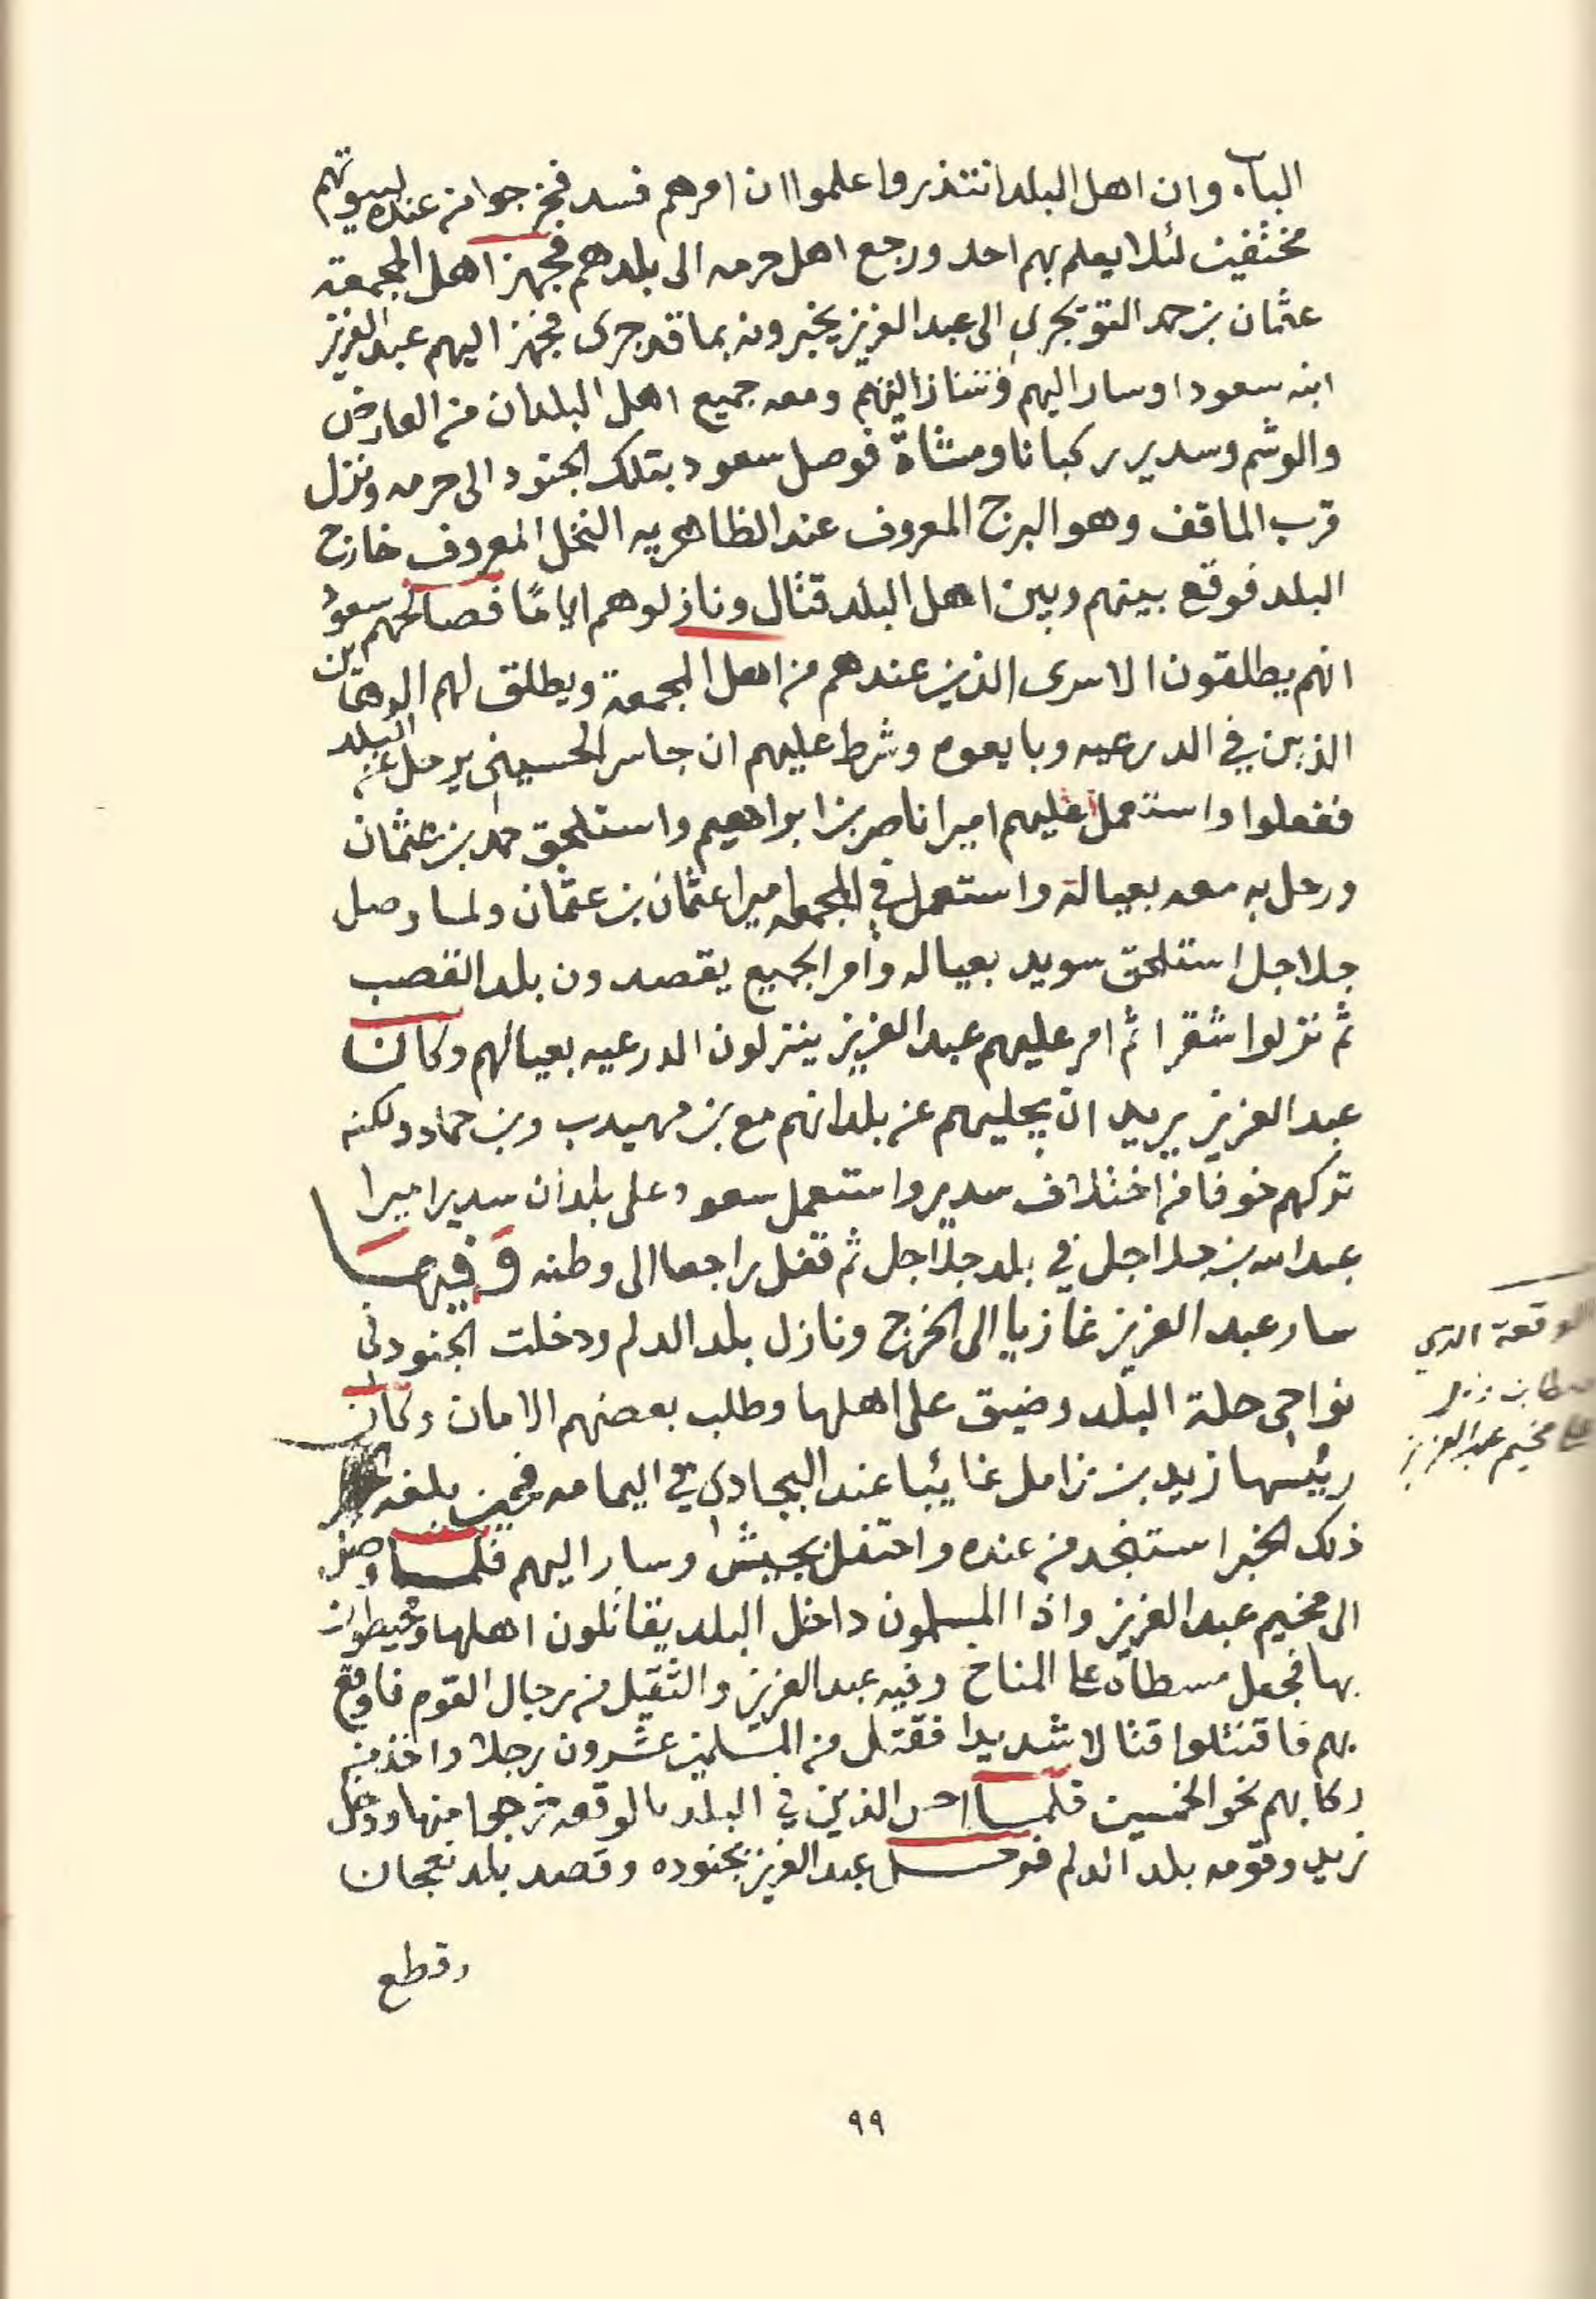 الباب وان اهل البلد انتذروا علموا ان امرهم فسد فخرجوا من عنده لبيوتهم
مختفين لئلا يعلم بهم احد ورجع اهل حرمه الى بلدهم فجهز اهل المجمعة
عثمان بن حمد التويجري الى عبد العزيز يخبرونه بما قد جرى فجهز اليهم عبد العزيز
ابنه سعودا وسار اليهم ومعه جميع اهل البلدان من العارض
والوشم وسدير ركبانا ومشاة فوصل سعود بتلك الجنود الى حرمه ونزل
قرب الماقف وهو البرج المعروف عند الظاهريه النخل المعروف خارج
البلد فوقع بينهم وبين اهل البلد قتال ونازلوهم اياما فصالحهم سعود
انهم يطلقون الاسرى الذين عندهم من اهل المجمعة ويطلق لهم الرهاين
الذين في الدرعيه وبايعوه وشرط عليهم ان جاسر الحسيني يرحل عن البلد
ففعلوا واستعمل عليهم اميرا ناصر بن ابراهيم واستلحق حمد بن عثمان
ورحل به معه بعياله واستعمل في المجمعه اميرا عثمان بن عثمان ولما وصل
جلاجل استلحق سويد بعياله وأمر الجميع يقصدون بلد القصب
ثم نزلوا شقرا ثم امر عليهم عبد العزيز ينزلون الدرعيه بعيالهم وكان
عبد العزيز يريد ان يجليهم عن بلدانهم مع بن مهيدب وبن حماد ولكنه
تركهم خوفا من اختلاف سدير واستعمل سعود على بلدان سدير اميرا
عبد الله بن جلاجل في بلد جلاجل ثم قفل راجعا الى وطنه وفيها
سار عبد العزيز غازيا الى الخرج ونازل بلد الدلم ودخلت الجنود في
نواحي حلة البلد وضيق على اهلها وطلب بعضهم الامان وكان
رئيسها زيد بن زامل غائبا عند البجادي في اليمامه فحين بلغه
ذلك الخبر استنجد من عنده واحتفل بجيش وسار اليهم فلما وصل
الى مخيم عبد العزيز واذا المسلمون داخل البلد يقاتلون اهلها ومحيطون
بها فجعل مسطاه على المناخ وفيه عبد العزيز والثقيل من رجال القوم فاوقع
بهم فاقتتلوا قتالا شديدا فقتل من المسلمين عشرون رجلا واخذ من
ركابهم نحو الخمسين فلما احس الذين في البلد بالوقعه خرجوا منها ودخل
زيد وقومه بلد الدلم فرحل عبد العزيز بجنوده وقصد بلد نعجان
وقطع
الوقعة الذي
سطا بن زامل
على مخيم عبد العزيز
٩٩